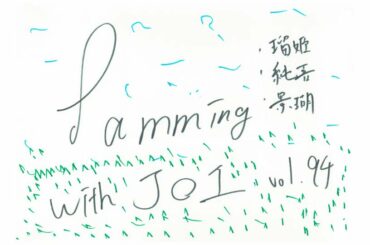 Jamming
・瑠姫
・純吾
・景瑚
with JO1 vol.94